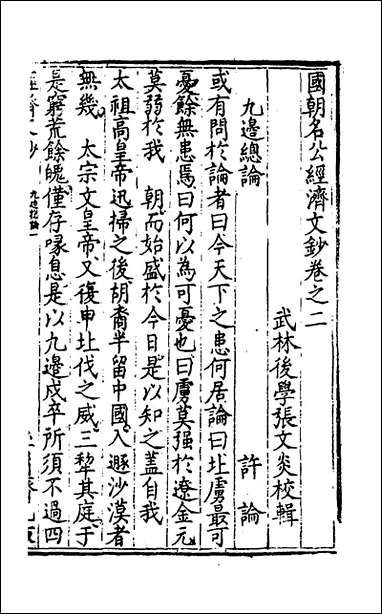 國朝名公經濟文鈔卷之二
武林後學張文炎校輯
九邊總論 許論
或有問於論者曰今天下之患何居論曰北虜最可
憂餘無患焉曰何以為可憂也曰虜莫强於遼金元
莫弱於我 朝而始盛於今日是以知之蓋自我
太祖高皇帝迅掃之後胡裔半留中國入遯沙漠者
無幾 太宗文皇帝又復申北伐之威三犁其庭于
是窮荒餘魄僅存喙息是以九邊戍卒所須不過四
九邊總論一